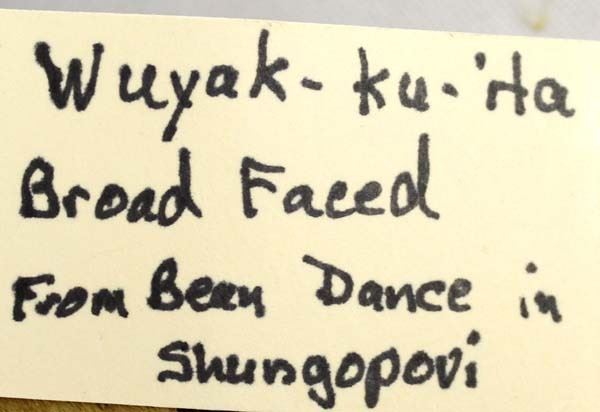 Wuyak-ku-'ita
Broad Faced
From Bean Dance in
Shungopovi